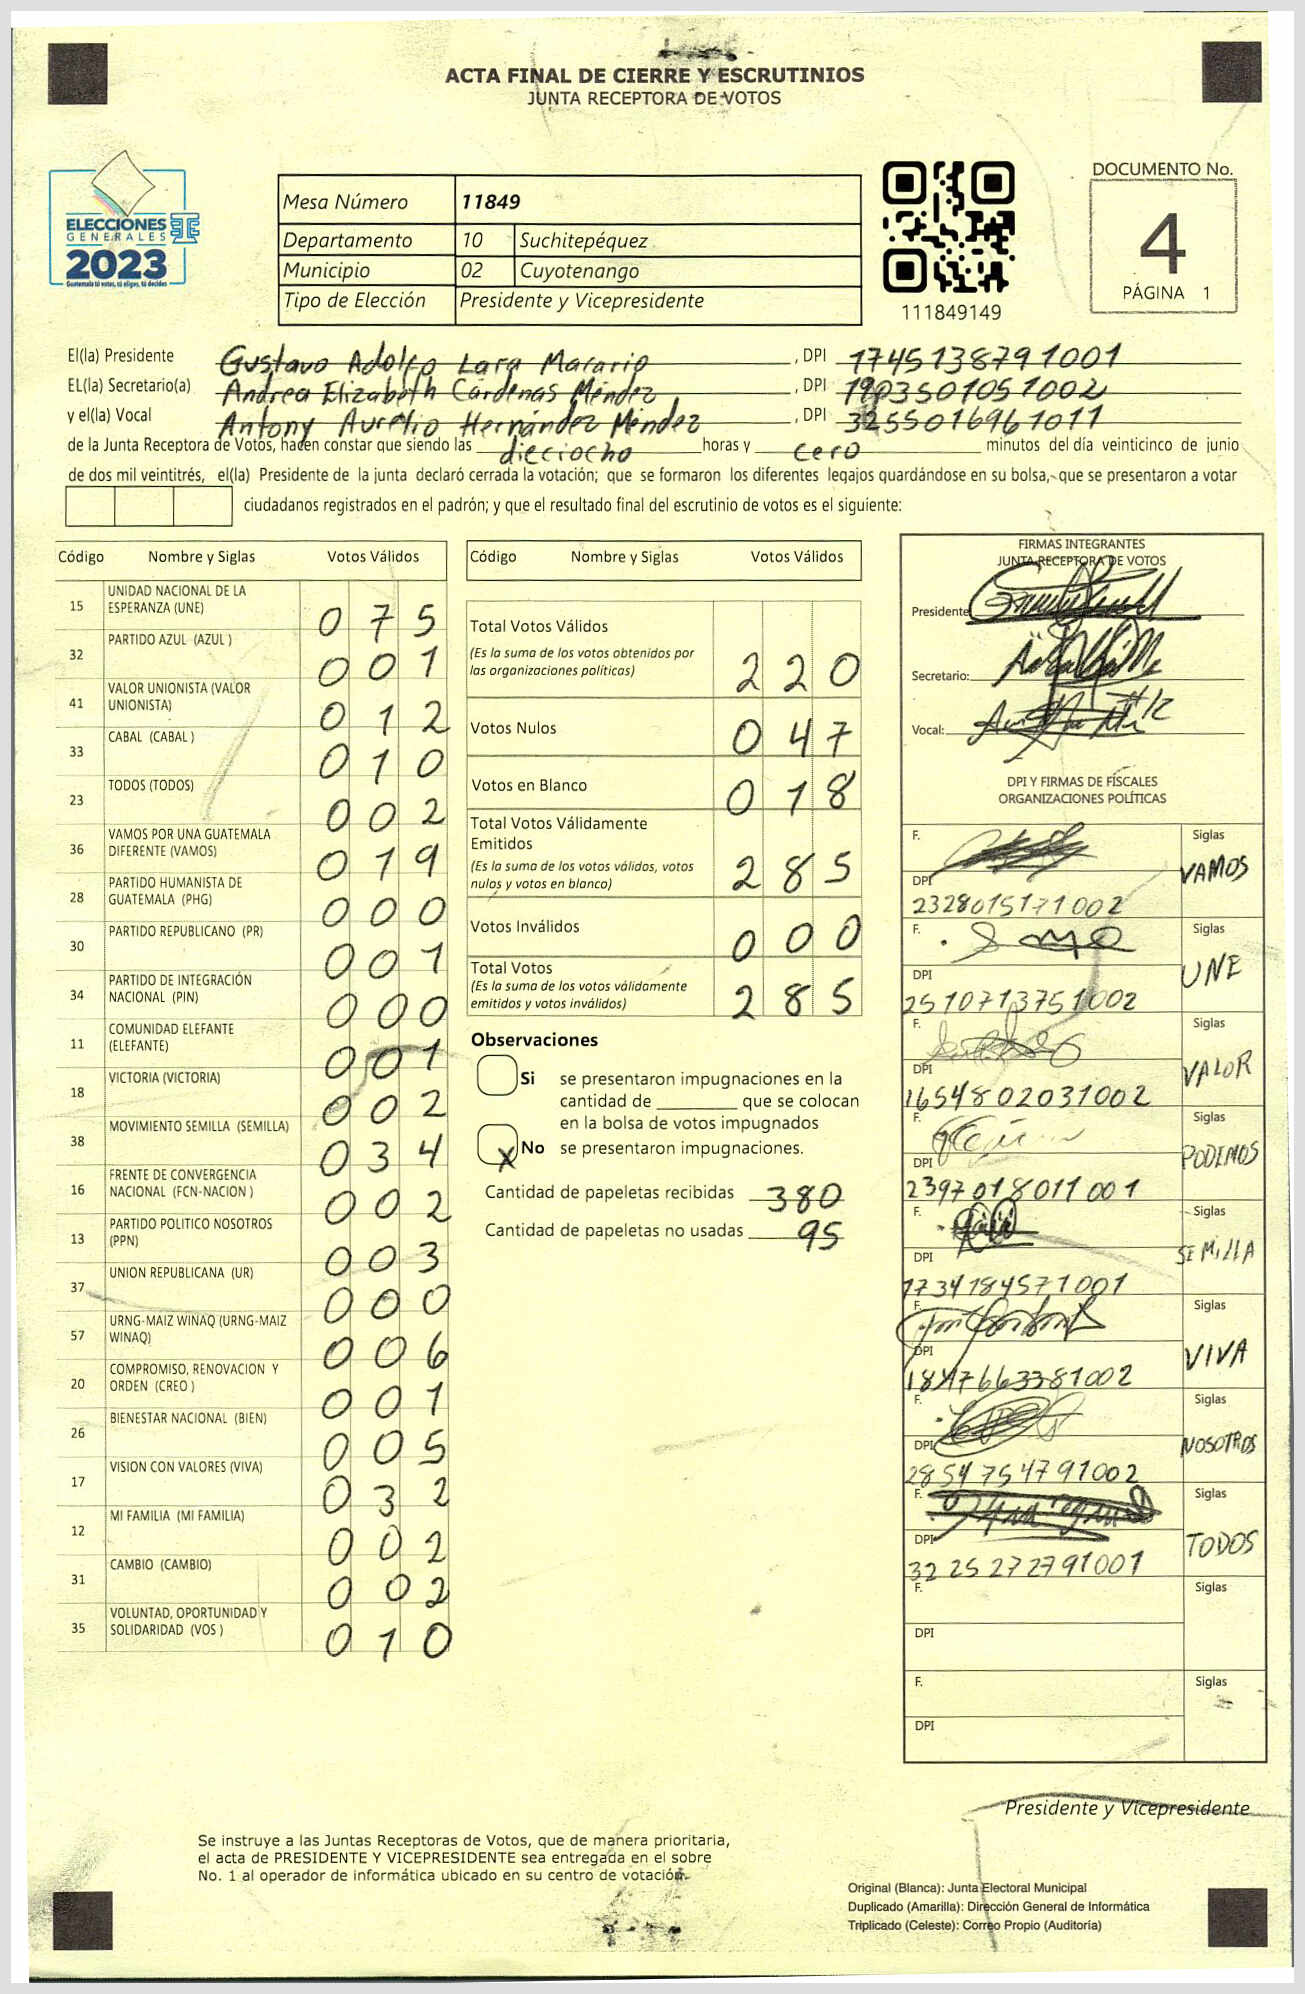 ACTA FINAL DE CIERRE Y ESCRUTINIOS
JUNTA RECEPTORA DE VOTOS
ELECCIONES
GENERALES
2023
Guatemala tú votas, tú eliges, tú decides
Mesa Número 11849
Departamento 10 Suchitepéquez
Municipio 02 Cuyotenango
Tipo de Elección Presidente y Vicepresidente
111849149
DOCUMENTO No.
4
PÁGINA 1
El(la) Presidente Gustavo Adolfo Lara Macario , DPI 1745138791001
EL(la) Secretario(a) Andrea Elizabeth Cárdenas Méndez , DPI 1903501051002
y el(la) Vocal Antony Aurelio Hernández Méndez , DPI 3255016961011
de la Junta Receptora de Votos, hacen constar que siendo las dieciocho horas y cero minutos del día veinticinco de junio
de dos mil veintitrés, el(la) Presidente de la junta declaró cerrada la votación; que se formaron los diferentes legajos guardándose en su bolsa, que se presentaron a votar
ciudadanos registrados en el padrón; y que el resultado final del escrutinio de votos es el siguiente:
Código Nombre y Siglas Votos Válidos
15 UNIDAD NACIONAL DE LA
ESPERANZA (UNE) 0 7 5
32 PARTIDO AZUL (AZUL ) 0 0 1
41 VALOR UNIONISTA (VALOR
UNIONISTA) 0 1 2
33 CABAL (CABAL ) 0 1 0
23 TODOS (TODOS) 0 0 2
36 VAMOS POR UNA GUATEMALA
DIFERENTE (VAMOS) 0 1 9
28 PARTIDO HUMANISTA DE
GUATEMALA (PHG) 0 0 0
30 PARTIDO REPUBLICANO (PR) 0 0 1
34 PARTIDO DE INTEGRACIÓN
NACIONAL (PIN) 0 0 0
11 COMUNIDAD ELEFANTE
(ELEFANTE) 0 0 1
18 VICTORIA (VICTORIA) 0 0 2
38 MOVIMIENTO SEMILLA (SEMILLA) 0 3 4
16 FRENTE DE CONVERGENCIA
NACIONAL (FCN-NACION ) 0 0 2
13 PARTIDO POLITICO NOSOTROS
(PPN) 0 0 3
37 UNION REPUBLICANA (UR) 0 0 0
57 URNG-MAIZ WINAQ (URNG-MAIZ
WINAQ) 0 0 6
20 COMPROMISO, RENOVACION Y
ORDEN (CREO ) 0 0 1
26 BIENESTAR NACIONAL (BIEN) 0 0 5
17 VISION CON VALORES (VIVA) 0 3 2
12 MI FAMILIA (MI FAMILIA) 0 0 2
31 CAMBIO (CAMBIO) 0 0 2
35 VOLUNTAD, OPORTUNIDAD Y
SOLIDARIDAD (VOS ) 0 1 0
Código Nombre y Siglas Votos Válidos
Total Votos Válidos
(Es la suma de los votos obtenidos por
las organizaciones políticas) 2 2 0
Votos Nulos 0 4 7
Votos en Blanco 0 1 8
Total Votos Válidamente
Emitidos
(Es la suma de los votos válidos, votos
nulos y votos en blanco) 2 8 5
Votos Inválidos 0 0 0
Total Votos
(Es la suma de los votos válidamente
emitidos y votos inválidos) 2 8 5
Observaciones
Si se presentaron impugnaciones en la
cantidad de ________ que se colocan
en la bolsa de votos impugnados
X No se presentaron impugnaciones.
Cantidad de papeletas recibidas 380
Cantidad de papeletas no usadas 95
FIRMAS INTEGRANTES
JUNTA RECEPTORA DE VOTOS
Presidente:
Secretario:
Vocal:
DPI Y FIRMAS DE FISCALES
ORGANIZACIONES POLÍTICAS
F. Siglas
VAMOS
DPI
2328015171002
F. Siglas
UNE
DPI
2510713751002
F. Siglas
VALOR
DPI
1654802031002
F. Siglas
PODEMOS
DPI
2397018011001
F. Siglas
SEMILLA
DPI
1734184571001
F. Siglas
VIVA
DPI
1847663381002
F. Siglas
NOSOTROS
DPI
2854754791002
F. Siglas
TODOS
DPI
3225272791001
F. Siglas
DPI
F. Siglas
DPI
Presidente y Vicepresidente
Se instruye a las Juntas Receptoras de Votos, que de manera prioritaria,
el acta de PRESIDENTE Y VICEPRESIDENTE sea entregada en el sobre
No. 1 al operador de informática ubicado en su centro de votación.
Original (Blanca): Junta Electoral Municipal
Duplicado (Amarilla): Dirección General de Informática
Triplicado (Celeste): Correo Propio (Auditoría)